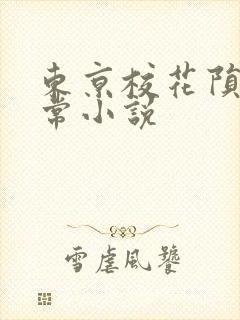 東京校花隕
常小説
雪虐風饕